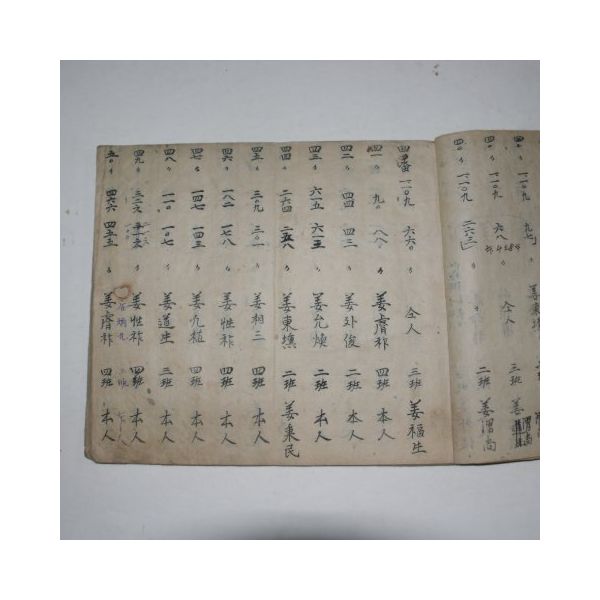 四〇 〃 一一〇九 九七 〃 姜東填 二班 姜渭尚
四〇 〃 一一〇九 六八 〃 仝人 三班 姜
四〇 〃 一一〇九 二六三 〃 二班 姜渭尚
四 番 一一〇九 六六〇 〃 仝人 三班 姜福生
四一 〃 九〇 八八 〃 姜膺祚 四班 本人
四二 〃 四四 四三 〃 姜外俊 二班 本人
四三 〃 六一五 六一五 〃 姜允煥 二班 本人
四四 〃 二六四 二五八 〃 姜東填 二班 姜秉民
四五 〃 三〇九 三〇一 〃 姜相三 四班 本人
四六 〃 一八二 一七八 〃 姜性祚 四班 本人
四七 〃 一四七 一四三 〃 姜九植 四班 本人
四八 〃 一一〇 一〇七 〃 姜道生 三班 本人
四九 〃 三二六 〃 姜性祚 四班 本人
五〇 〃 四六六 四五五 〃 姜膺祚 四班 本人